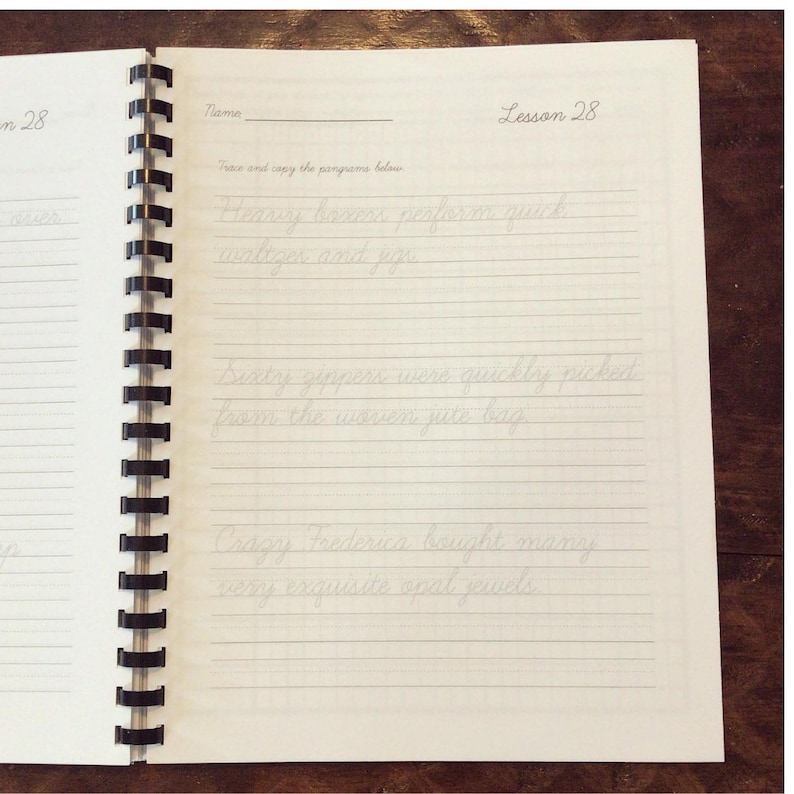 n 28
over
ep
Name: Lesson 28
Trace and copy the pangrams below.
Heavy boxers perform quick
waltzes and jigs.
Sixty zippers were quickly picked
from the woven jute bag.
Crazy Frederica bought many
very exquisite opal jewels.